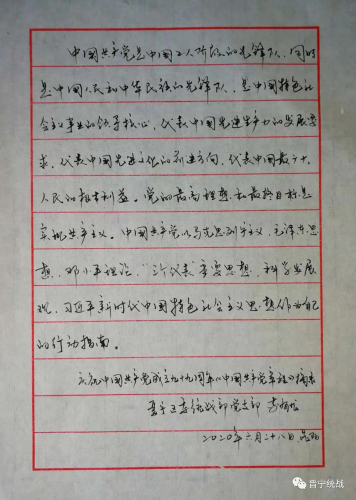 中国共产党是中国工人阶级的先锋队，同时
是中国人民和中华民族的先锋队，是中国特色社
会主义事业的领导核心，代表中国先进生产力的发展要
求，代表中国先进文化的前进方向，代表中国最广大
人民的根本利益。党的最高理想和最终目标是
实现共产主义。中国共产党以马克思列宁主义、毛泽东思
想、邓小平理论、“三个代表”重要思想、科学发展
观、习近平新时代中国特色社会主义思想作为自己
的行动指南。
庆祝中国共产党成立九十九周年《中国共产党章程》摘录
晋宁区委统战部党支部
2020年六月二十八日 昆明
晋宁统战